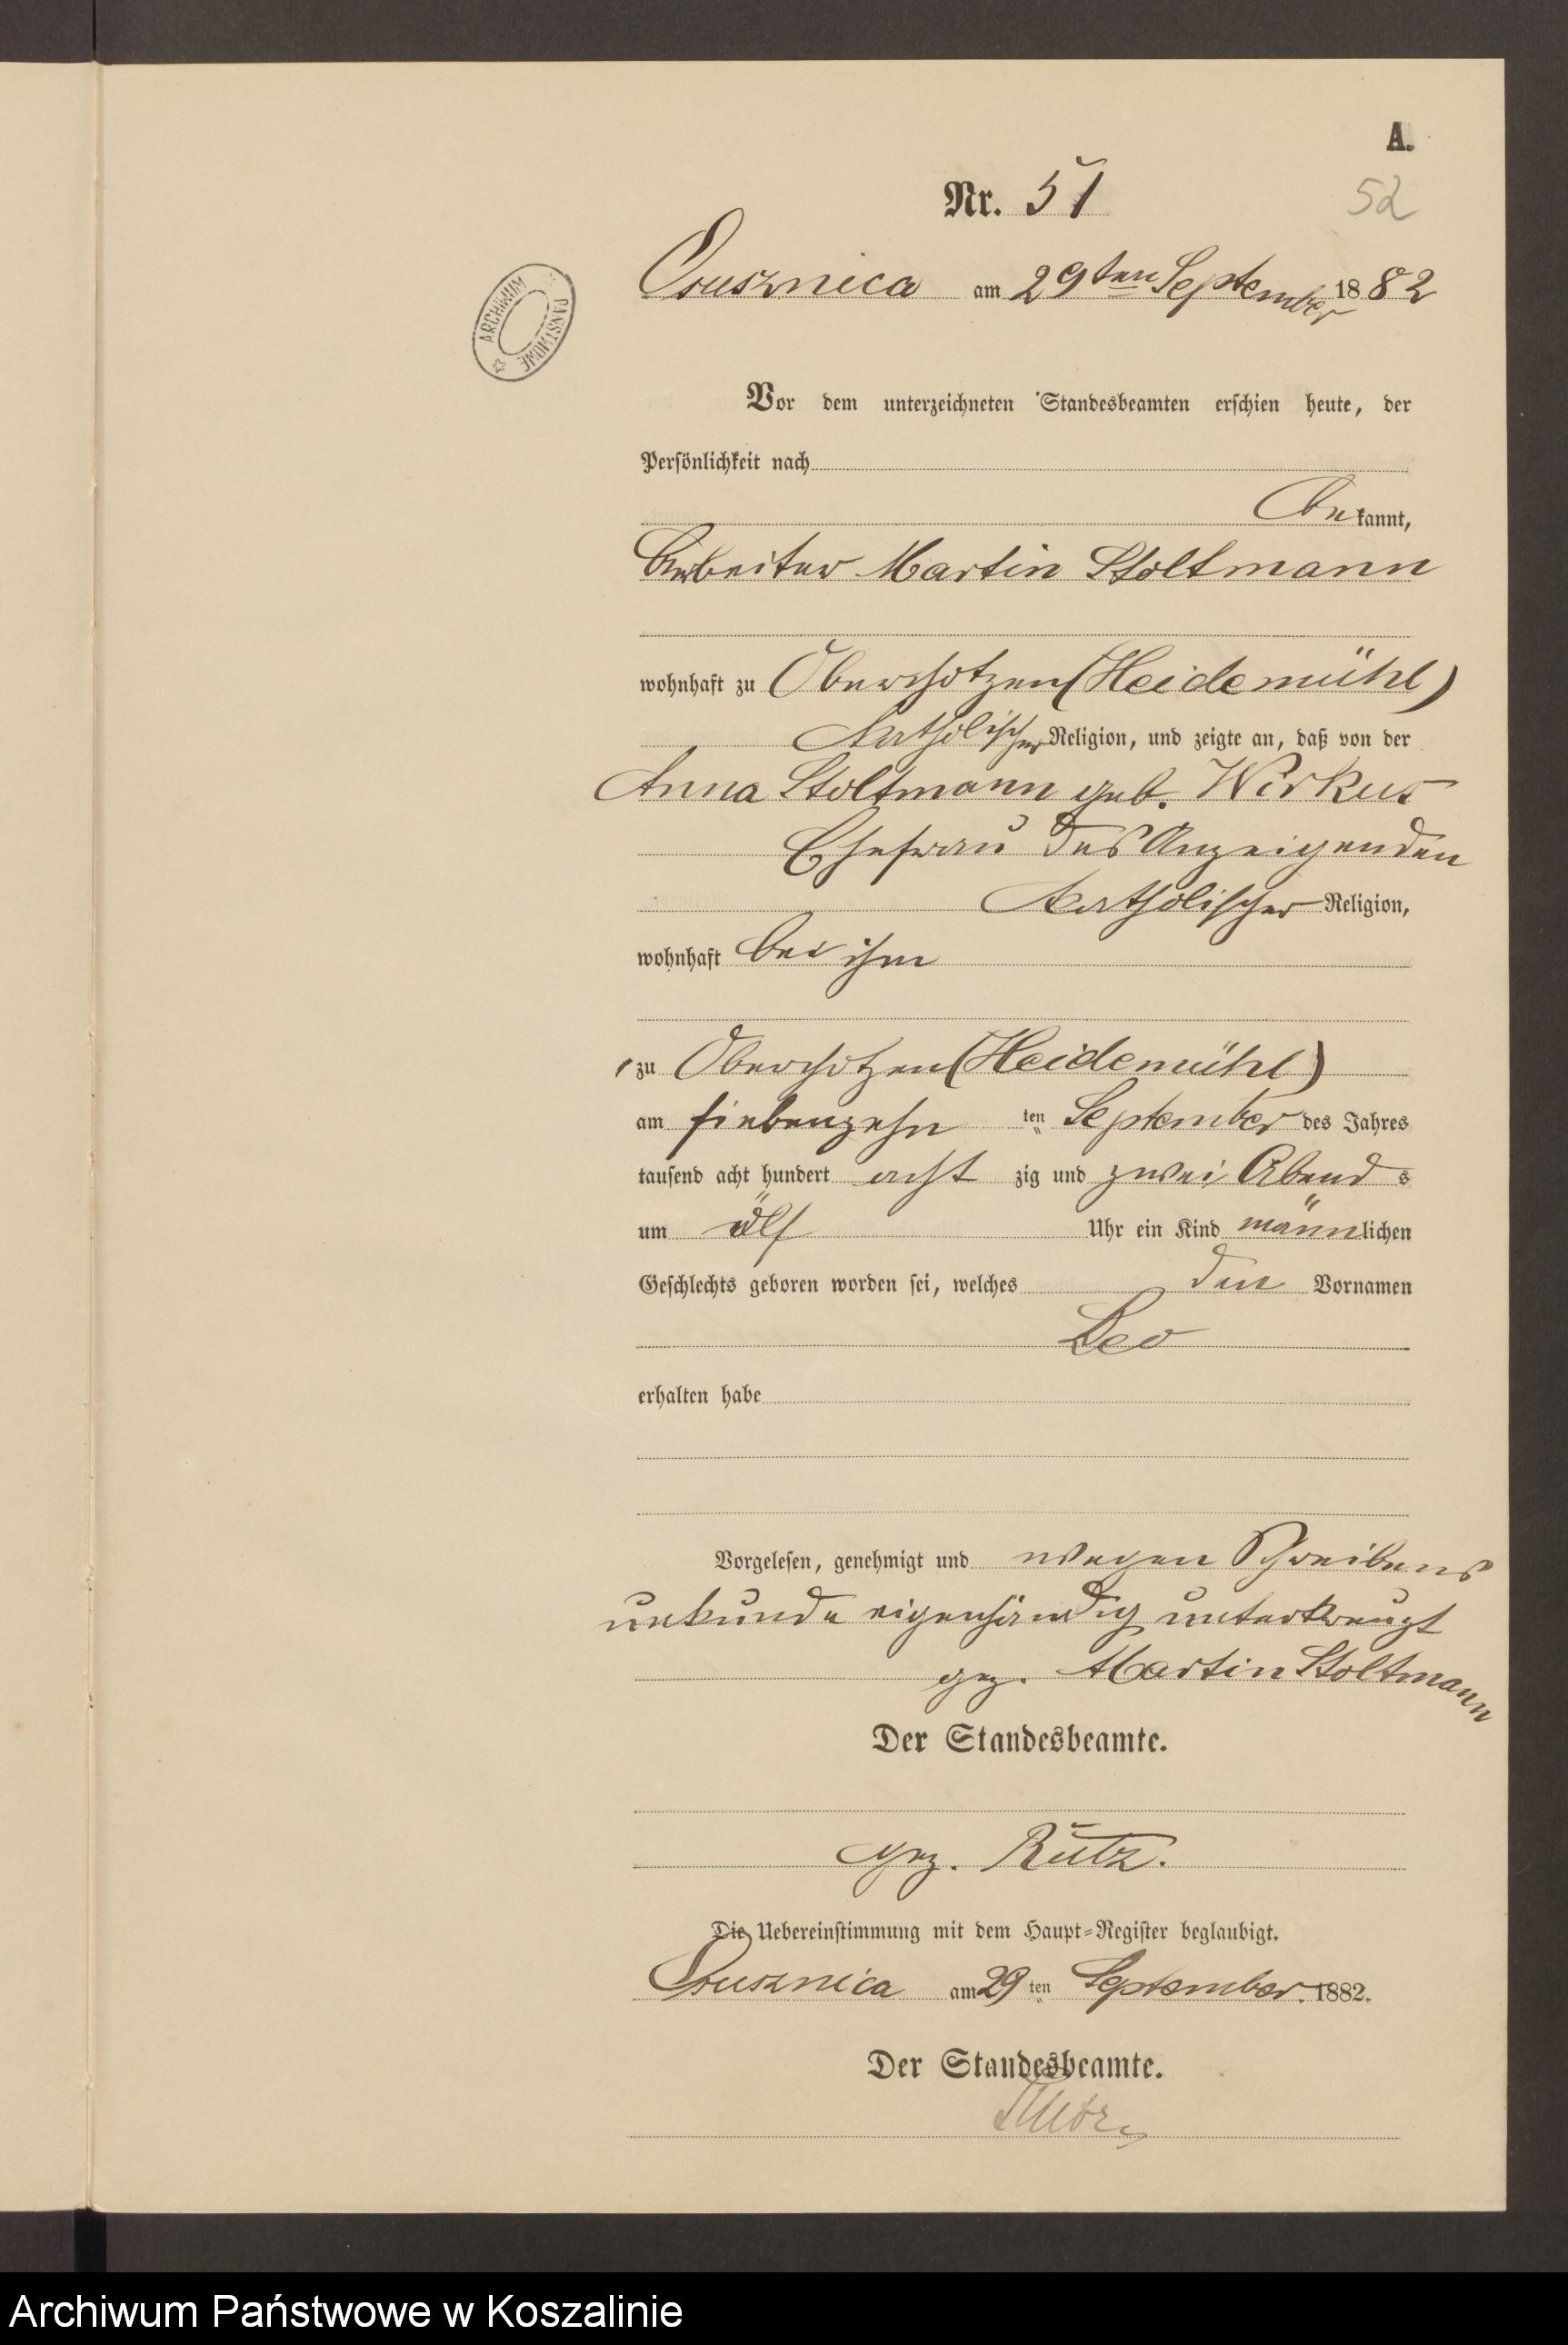 A.
Nr. 51
52
Osusznica am 29ten September 1882
ARCHIWUM PAŃSTWOWE
Vor dem unterzeichneten Standesbeamten erschien heute, der
Persönlichkeit nach
bekannt,
Arbeiter Martin Stoltmann
wohnhaft zu Oberschotzen (Heidemühl)
katholischer Religion, und zeigte an, daß von der
Anna Stoltmann geb. Wirkus
Ehefrau des Anzeigenden
katholischer Religion,
wohnhaft bei ihm
zu Oberschotzen (Heidemühl)
am siebenzehn ten September des Jahres
tausend acht hundert acht zig und zwei Abend s
um ölf Uhr ein Kind männlichen
Geschlechts geboren worden sei, welches den Vornamen
Leo
erhalten habe
Vorgelesen, genehmigt und wegen Schreibens
unkunde eigenhändig unterkreuzt
gez. Martin Stoltmann
Der Standesbeamte.
gez. Rutz.
Die Uebereinstimmung mit dem Haupt-Register beglaubigt.
Osusznica am 29 ten September 1882.
Der Standesbeamte.
Archiwum Państwowe w Koszalinie